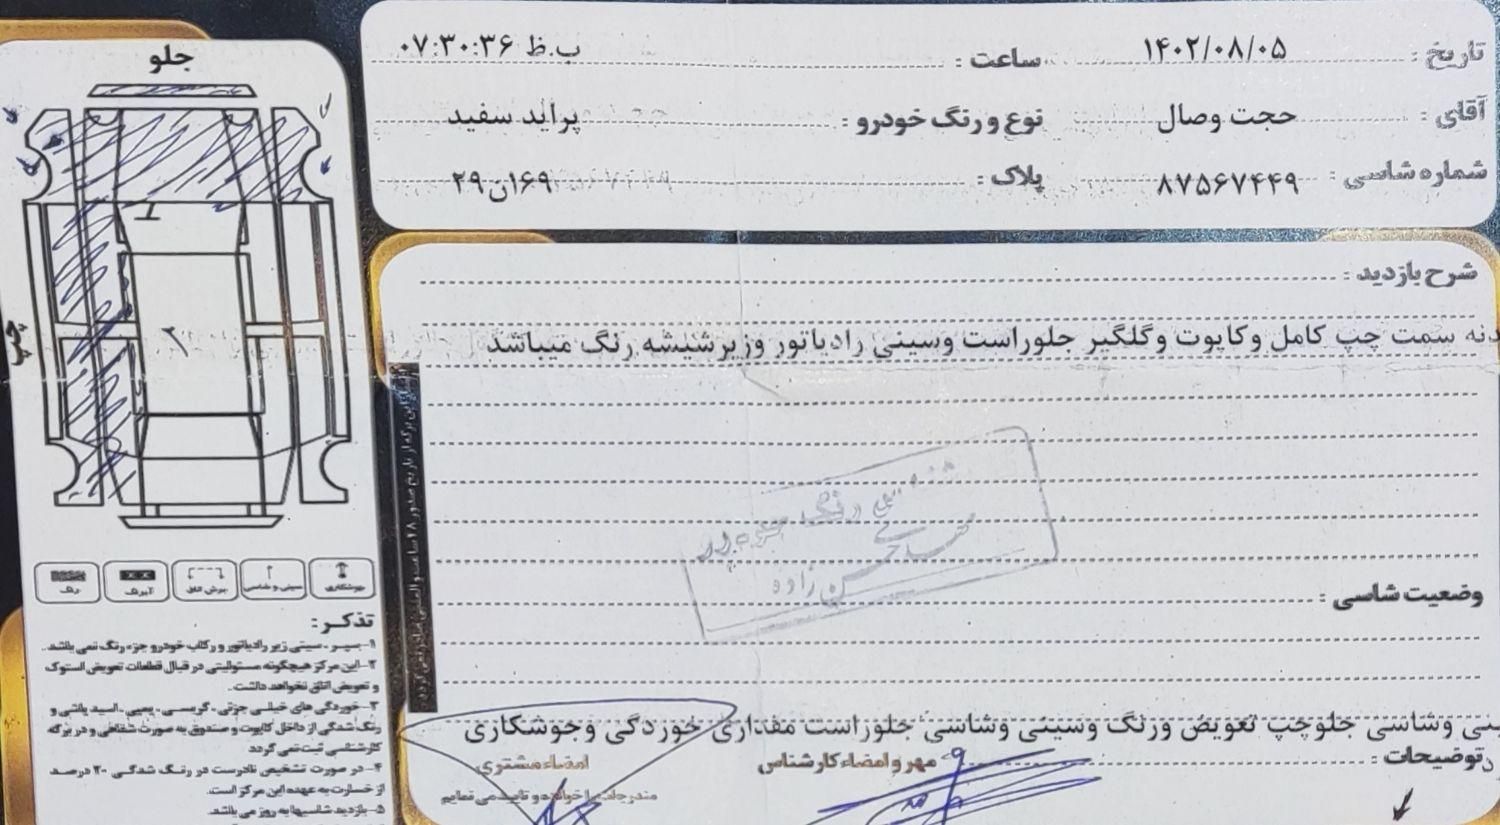 تاریخ : ۱۴۰۲/۰۸/۰۵ ساعت : ۰۷:۳۰:۳۶ ب.ظ
آقای : حجت وصال نوع و رنگ خودرو : پراید سفید
شماره شاسی : ۸۷۵۶۷۴۴۹ پلاک : ۱۶۹ن۲۹
شرح بازدید :
دنه سمت چپ کامل وکاپوت وگلگیر جلوراست وسینی رادیاتور وزیرشیشه رنگ میباشد
وضعیت شاسی :
ینی وشاسی جلوچپ تعویض ورنگ وسینی وشاسی جلوراست مقداری خوردگی وجوشکاری
توضیحات :
مهر و امضاء کارشناس
امضاء مشتری
مندرجات را خوانده و تایید می نمایم
جلو
چپ
جوشکاری
سینی و شاسی
برش اتاق
آبرنگ
رنگ
تذکر :
۱-سپر ، سینی زیر رادیاتور و رکاب خودرو جزء رنگ نمی باشد.
۲-این مرکز هیچگونه مسئولیتی در قبال قطعات تعویض استوک
و تعویض اتاق نخواهد داشت.
۳-خوردگی های خیلی جزئی ، گریسی ، پمپی ، اسید پاشی و
رنگ شدگی از داخل کاپوت و صندوق به صورت شفاهی و در برگه
کارشناسی ثبت نمی گردد
۴-در صورت تشخیص نادرست در رنگ شدگی ۲۰ درصد
از خسارت به عهده این مرکز است.
۵-بازدید شاسیها به روز می باشد.